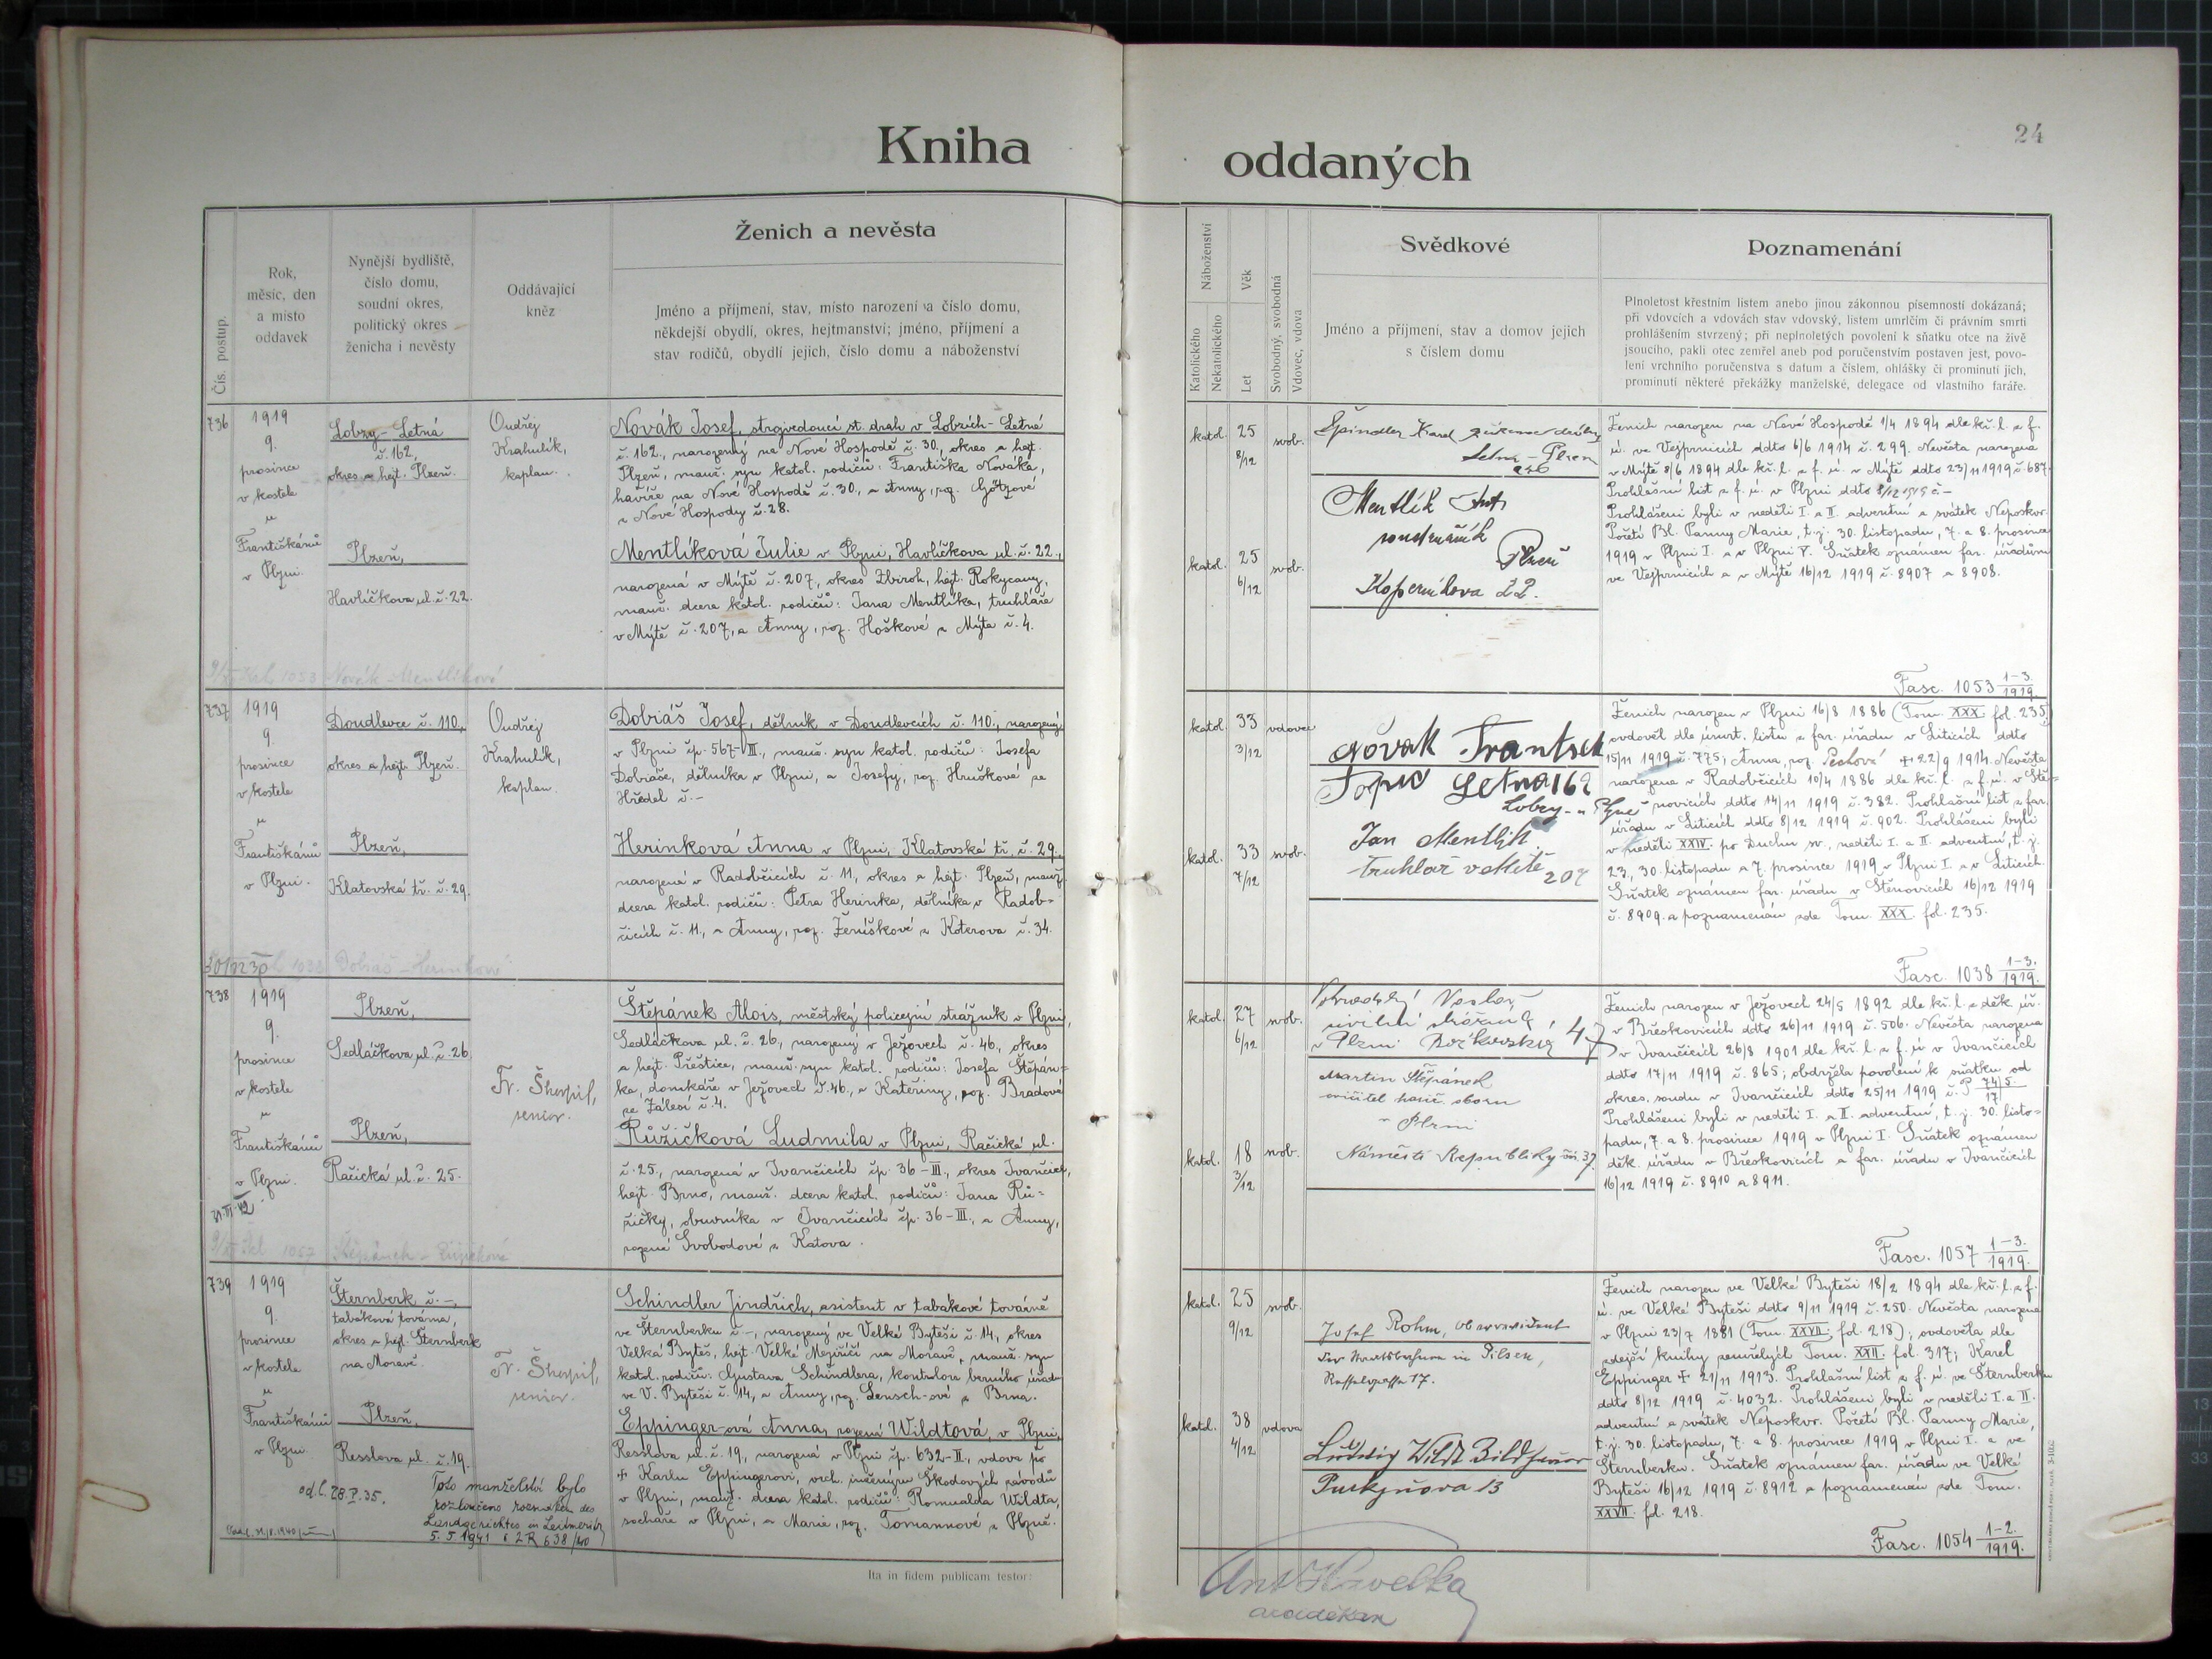 24
Kniha oddaných
Čís. postup.
Rok,
měsíc, den
a místo
oddavek
Nynější bydliště,
číslo domu,
soudní okres,
politický okres
ženicha i nevěsty
Oddávající
kněz
Ženich a nevěsta
Jméno a příjmení, stav, místo narození a číslo domu,
někdejší obydlí, okres, hejtmanství; jméno, příjmení a
stav rodičů, obydlí jejich, číslo domu a náboženství
Náboženství
Katolického
Nekatolického
Věk
Let
Svobodný, svobodná
Vdovec, vdova
Svědkové
Jméno a příjmení, stav a domov jejich
s číslem domu
Poznamenání
Plnoletost křestním listem anebo jinou zákonnou písemností dokázaná;
při vdovcích a vdovách stav vdovský, listem umrlčím či právním smrti
prohlášením stvrzený; při neplnoletých povolení k sňatku otce na živě
jsoucího, pakli otec zemřel aneb pod poručenstvím postaven jest, povo-
lení vrchního poručenstva s datum a číslem, ohlášky či prominutí jich,
prominutí některé překážky manželské, delegace od vlastního faráře.
736
1919
9.
prosince
v kostele
u
Františkánů
v Plzni.
Lobzy-Letná
č. 162,
okres a hejt. Plzeň.
Plzeň,
Havlíčkova ul. č. 22.
Ondřej
Krahulík,
kaplan.
Novák Josef, strojvedoucí st. drah v Lobzích-Letné
č. 162., narozený na Nové Hospodě č. 30., okres a hejt.
Plzeň, manž. syn katol. rodičů: Františka Nováka,
havíře na Nové Hospodě č. 30., a Anny, roz. Götzové
z Nové Hospody č. 28.
Mentlíková Julie v Plzni, Havlíčkova ul. č. 22.,
narozená v Mýtě č. 207, okres Zbiroh, hejt. Rokycany,
manž. dcera katol. rodičů: Jana Mentlíka, truhláře
v Mýtě č. 207, a Anny, roz. Hoškové z Mýta č. 4.
Novák - Mentlíková
katol. 25 8/12 svob.
katol. 25 6/12 svob.
Špindler Karel
Letná - Plzen
Mentlík Ant.
Plzeň
Koperníkova 22.
Ženich narozen na Nové Hospodě 1/4 1894 dle kř. l. z f.
ú. ve Vejprnicích ddto 6/6 1914 č. 299. Nevěsta narozena
v Mýtě 8/6 1894 dle kř. l. z f. ú. v Mýtě ddto 23/11 1919 č. 687.
Prohlášní list z f. ú. v Plzni ddto 8/12 1919 č. –
Prohlášeni byli v neděli I. a II. adventní a svátek Neposkvr.
Početí Bl. Panny Marie, t. j. 30. listopadu, 7. a 8. prosince
1919 v Plzni I. a v Plzni V. Sňatek oznámen far. úřadům
ve Vejprnicích a v Mýtě 16/12 1919 č. 8907 a 8908.
Fasc. 1053 1-3./1919.
737
1919
9.
prosince
v kostele
u
Františkánů
v Plzni.
Doudlevce č. 110.,
okres a hejt. Plzeň.
Plzeň,
Klatovská tř. č. 29.
Ondřej
Krahulík,
kaplan.
Dobiáš Josef, dělník v Doudlevcích č. 110., narozený
v Plzni čp. 567-III., manž. syn katol. rodičů: Josefa
Dobiáše, dělníka v Plzni, a Josefy, roz. Hruškové ze
Hředel č. –
Herinková Anna v Plzni, Klatovská tř. č. 29.
narozená v Radobčicích č. 11, okres a hejt. Plzeň, manž.
dcera katol. rodičů: Petra Herinka, dělníka v Radob-
čicích č. 11., a Anny, roz. Ženíškové z Koterova č. 34.
1038 Dobiáš - Herinková
katol. 33 3/12 vdovec
katol. 33 7/12 svob.
Novak Frantisek
Topič Letna 162
Jan Mentlik
truhlář v Mitě 207
Ženich narozen v Plzni 16/8 1886 (Tom. XXX. fol. 235)
ovdověl dle úmrt. listu z far. úřadu v Liticích ddto
15/11 1919 č. 775; Anna, roz. Pechová + 22/9 1914. Nevěsta
narozena v Radobčicích 10/4 1886 dle kř. l. z f. ú. v Ště-
novicích ddto 14/11 1919 č. 382. Prohlášní list z far.
úřadu v Liticích ddto 8/12 1919 č. 902. Prohlášeni byli
v neděli XXIV. po Duchu sv., neděli I. a II. adventní, t. j.
23., 30. listopadu a 7. prosince 1919 v Plzni I. a v Liticích.
Sňatek oznámen far. úřadu v Štěnovicích 16/12 1919
č. 8909. a poznamenán zde Tom. XXX. fol. 235.
Fasc. 1038 1-3./1919.
738
1919
9.
prosince
v kostele
u
Františkánů
v Plzni.
Plzeň,
Sedláčkova ul. č. 26.
Plzeň,
Račická ul. č. 25.
senior.
Štěpánek Alois, městský policejní strážník v Plzni,
Sedláčkova ul. č. 26, narozený v Ježovech č. 46., okres
a hejt. Přeštice, manž. syn katol. rodičů: Josefa Štěpán-
ka, domkáře v Ježovech č. 46., a Kateřiny, roz. Bradové
ze Zálesí č. 4.
Růžičková Ludmila v Plzni, Račická ul.
č. 25., narozená v Ivančicích čp. 36-III., okres Ivančice,
hejt. Brno, manž. dcera katol. rodičů: Jana Rů-
žičky, obuvníka v Ivančicích čp. 36-III., a Anny,
rozené Svobodové z Katova.
1057 Štěpánek - Růžičková
katol. 27 6/12 svob.
katol. 18 3/12 svob.
civilní strážník
v Plzni 47
Martin Štěpánek
cvičitel hasič. sboru
v Plzni
Náměstí Republiky čís. 37.
Ženich narozen v Ježovech 24/5 1892 dle kř. l. z děk. úř.
v Břeskovicích ddto 26/11 1919 č. 506. Nevěsta narozena
v Ivančicích 26/8 1901 dle kř. l. z f. ú. v Ivančicích
ddto 17/11 1919 č. 865; obdržela povolení k sňatku od
okres. soudu v Ivančicích ddto 25/11 1919 č. P 74/5/17
Prohlášeni byli v neděli I. a II. adventní, t. j. 30. listo-
padu, 7. a 8. prosince 1919 v Plzni I. Sňatek oznámen
děk. úřadu v Břeskovicích a far. úřadu v Ivančicích
16/12 1919 č. 8910 a 8911.
Fasc. 1057 1-3./1919.
739
1919
9.
prosince
v kostele
u
Františkánů
v Plzni.
Šternberk č. –,
tabáková továrna,
okres a hejt. Šternberk
na Moravě.
Plzeň,
Resslova ul. č. 19.
senior.
Schindler Jindřich, asistent v tabákové továrně
ve Šternberku č. –, narozený ve Velké Byteši č. 14, okres
Velká Byteš, hejt. Velké Meziříčí na Moravě, manž. syn
katol. rodičů: Gustava Schindlera, kontrolora berního úřadu
ve V. Byteši č. 14, a Anny, roz. Lensch-ové z Brna.
Eppinger-ová Anna, rozená Wildtová, v Plzni,
Resslova ul. č. 19., narozená v Plzni čp. 632-II., vdova po
+ Karlu Eppingerovi, vrch. inženýru Škodových závodů
v Plzni, manž. dcera katol. rodičů: Romualda Wildta,
sochaře v Plzni, a Marie, roz. Tomannové z Plzně.
Toto manželství bylo
rozloučeno rozsudkem des
Landgerichtes in Leitmeritz
5. 5. 1941 č 2 R 638/40
katol. 25 9/12 svob.
katol. 38 4/12 vdova
Josef Rohm, Oberrevident
der Staatsbahnen in Pilsen,
Ludwig Wildt Bildhauer
Purkyňova 13
Ženich narozen ve Velké Byteši 18/2 1894 dle kř. l. z f.
ú. ve Velké Byteši ddto 9/11 1919 č. 250. Nevěsta narozena
v Plzni 23/7 1881 (Tom. XXVII. fol. 218); ovdověla dle
zdejší knihy zemřelých Tom. XXII. fol. 317; Karel
Eppinger + 21/11 1913. Prohlášní list z f. ú. ve Šternberku
ddto 8/12 1919 č. 4032. Prohlášeni byli v neděli I. a II.
adventní a svátek Neposkvr. Početí Bl. Panny Marie,
t. j. 30. listopadu, 7. a 8. prosince 1919 v Plzni I. a ve
Šternberku. Sňatek oznámen far. úřadu ve Velké
Byteši 16/12 1919 č. 8912 a poznamenán zde Tom.
XXVII. fol. 218.
Fasc. 1054 1-2./1919.
Ita in fidem publicam testor:
Ant Havelka
arciděkan